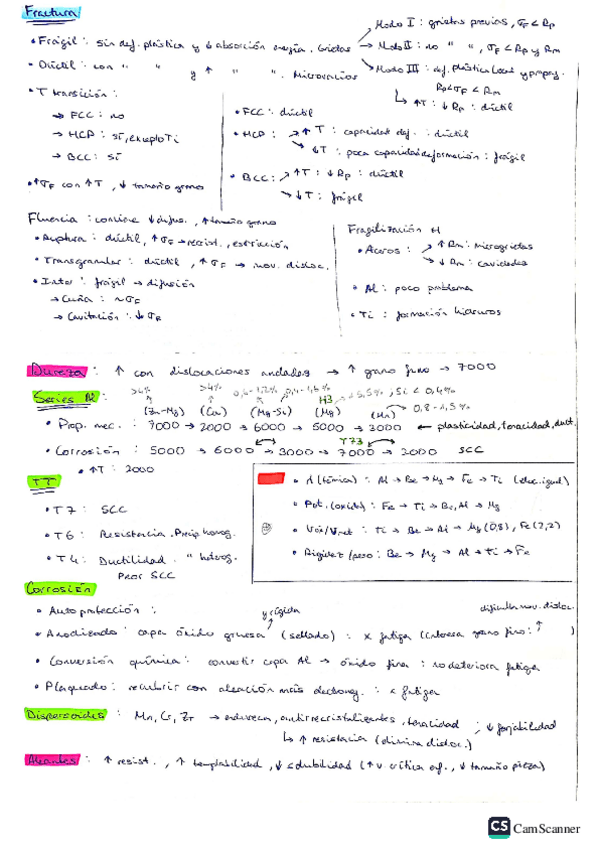 Fractura
Modo I : grietas previas, σF < Rp
• Frágil : sin def. plástica y ↓ absorción energía. Grietas → Modo II : no " ", σF < Rp y Rm
• Dúctil : con " " y ↑ " ". Microvacíos → Modo III : def. plástica local y propag.
Rp<σF<Rm
↳ ↑T : ↓Rp : dúctil
• T transición :
→ FCC : no
→ HCP : sí, excepto Ti
→ BCC : sí
• ↑σF con ↑T, ↓ tamaño grano
• FCC : dúctil
• HCP : ↑T : capacidad def. : dúctil
↓T : poca capacidad deformación : frágil
• BCC : ↑T : ↓Rp : dúctil
↓T : frágil
Fluencia : conviene ↓ difus., ↑ tamaño grano
• Ruptura : dúctil, ↑σF → recrist., estricción
• Transgranular : dúctil, ↑σF → mov. disloc.
• Inter : frágil → difusión
→ Cuña : ~σF
→ Cavitación : ↓σF
Fragilización H
• Aceros : ↑Rm : microgrietas
↓Rm : cavidades
• Al : poco problema
• Ti : formación hidruros
Dureza : ↑ con dislocaciones ancladas → ↑ grano fino → 7000
Series Al : >4% >4% 0,4-1,2%
H3 , Si < 0,4%
(Zn-Mg) (Cu) (Mg-Si) (Mg) (Mn) → 0,8-1,5%
• Prop. mec. : 7000 → 2000 → 6000 → 5000 → 3000 ← plasticidad, tenacidad, duct.
T73
• Corrosión : 5000 → 6000 → 3000 → 7000 → 2000 SCC
• ↑T : 2000
TT
• T7 : SCC
• T6 : Resistencia. Precip. homog.
• T4 : Ductilidad. " heterog.
Peor SCC
• λ (térmica) : Al → Be → Mg → Fe → Ti (elec. igual)
• Pot. (oxid) : Fe → Ti → Be, Al → Mg
• Vox/Vmet : Ti → Be → Al → Mg (0,8), Fe (2,2)
• Rigidez/peso : Be → Mg → Al → Ti → Fe
Corrosión
• Autoprotección :
y rígida
dificulta mov. disloc.
• Anodizado : capa óxido gruesa (sellado) : × fatiga (interesa grano fino : ↑ )
• Conversión química : convertir capa Al → óxido fina : no deteriora fatiga
• Plaqueado : recubrir con aleación más electroneg. : × fatiga
Dispersoides : Mn, Cr, Zr → endurecen, antirrecristalizantes, tenacidad ; ↓ forjabilidad
↳ ↑ resistencia (disminuye disloc.)
Aleantes : ↑ resist., ↑ templabilidad, ↓ solubilidad (↑ v. crítica enf., ↓ tamaño pieza)
CS CamScanner